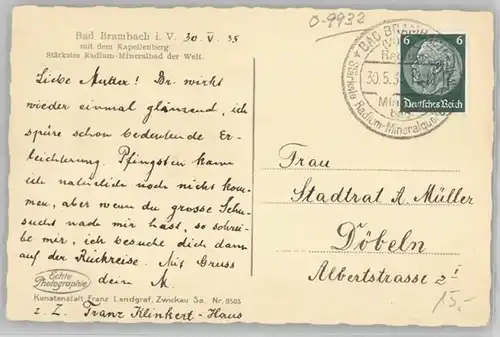 Bad Brambach i. V. 30. V. 35
mit dem Kapellenberg
Stärkstes Radium-Mineralbad der Welt.
Liebe Mutter! Br. wirkt
wieder einmal glänzend, ich
spüre schon bedeutende Er-
leichterung. Pfingsten kann
ich natürlich noch nicht kom-
men, aber wenn du grosse Sehn-
sucht nach mir hast, so schrei-
be mir, ich besuche dich dann
auf der Rückreise. Mit Gruss
dein M.
Echte
Photographie
Kunstanstalt Franz Landgraf, Zwickau Sa. Nr. 8503
z. Z. Franz Klinkert-Haus
O-9932
BAD BRAMB
30.5.3
Stärkste Radium-Mineralquel
6 6
Deutsches Reich
Frau
Stadtrat A. Müller
Döbeln
Albertstrasse 2 I
15,-